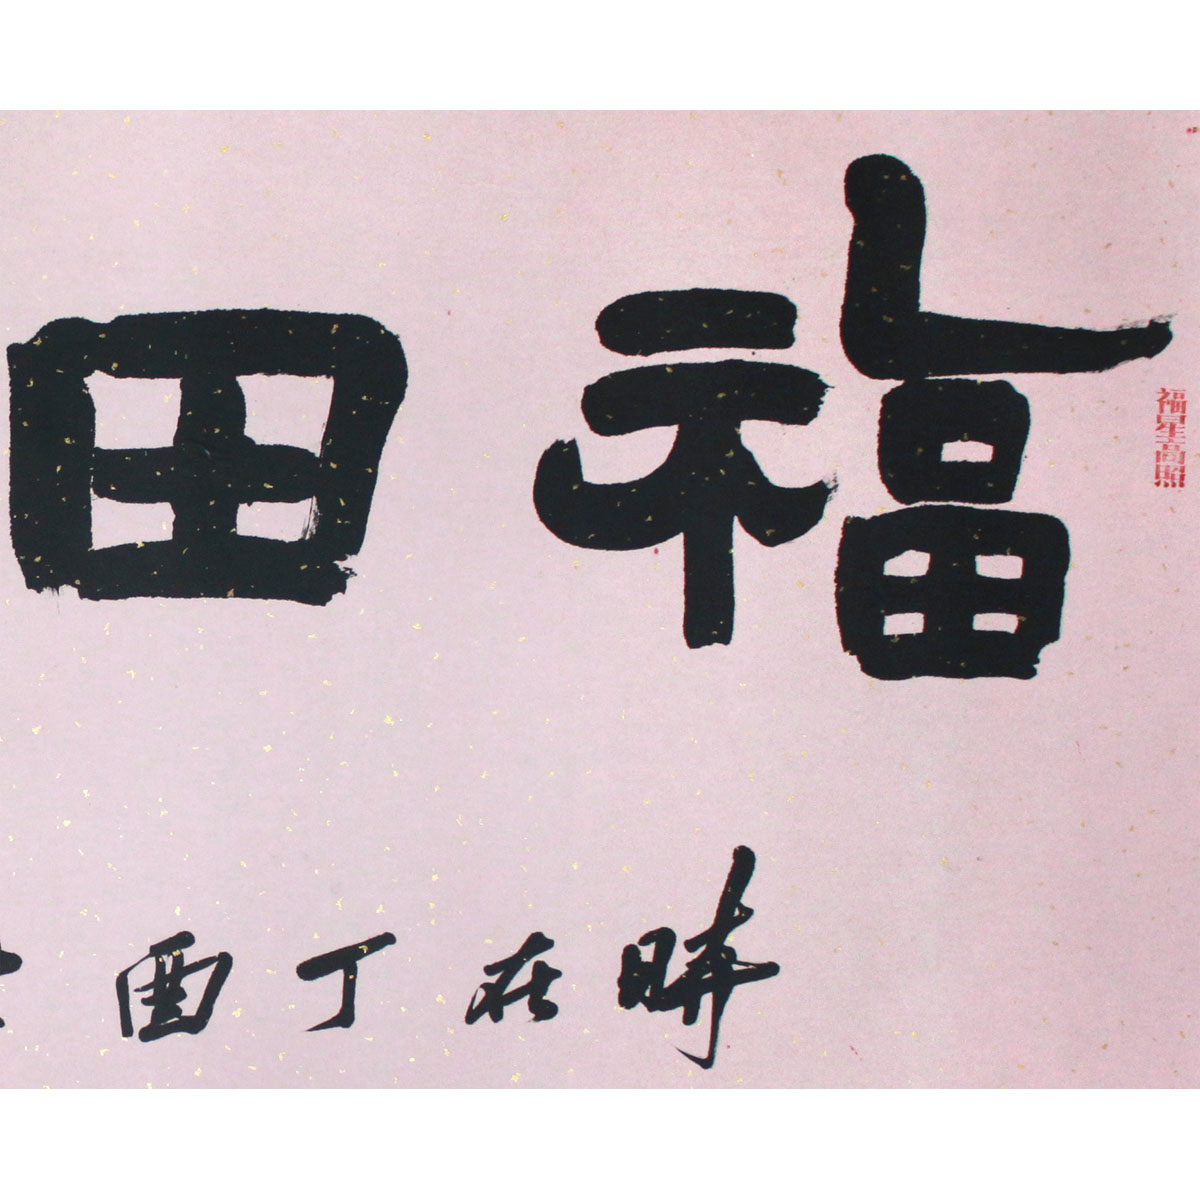 福田
福星高照
時在丁酉